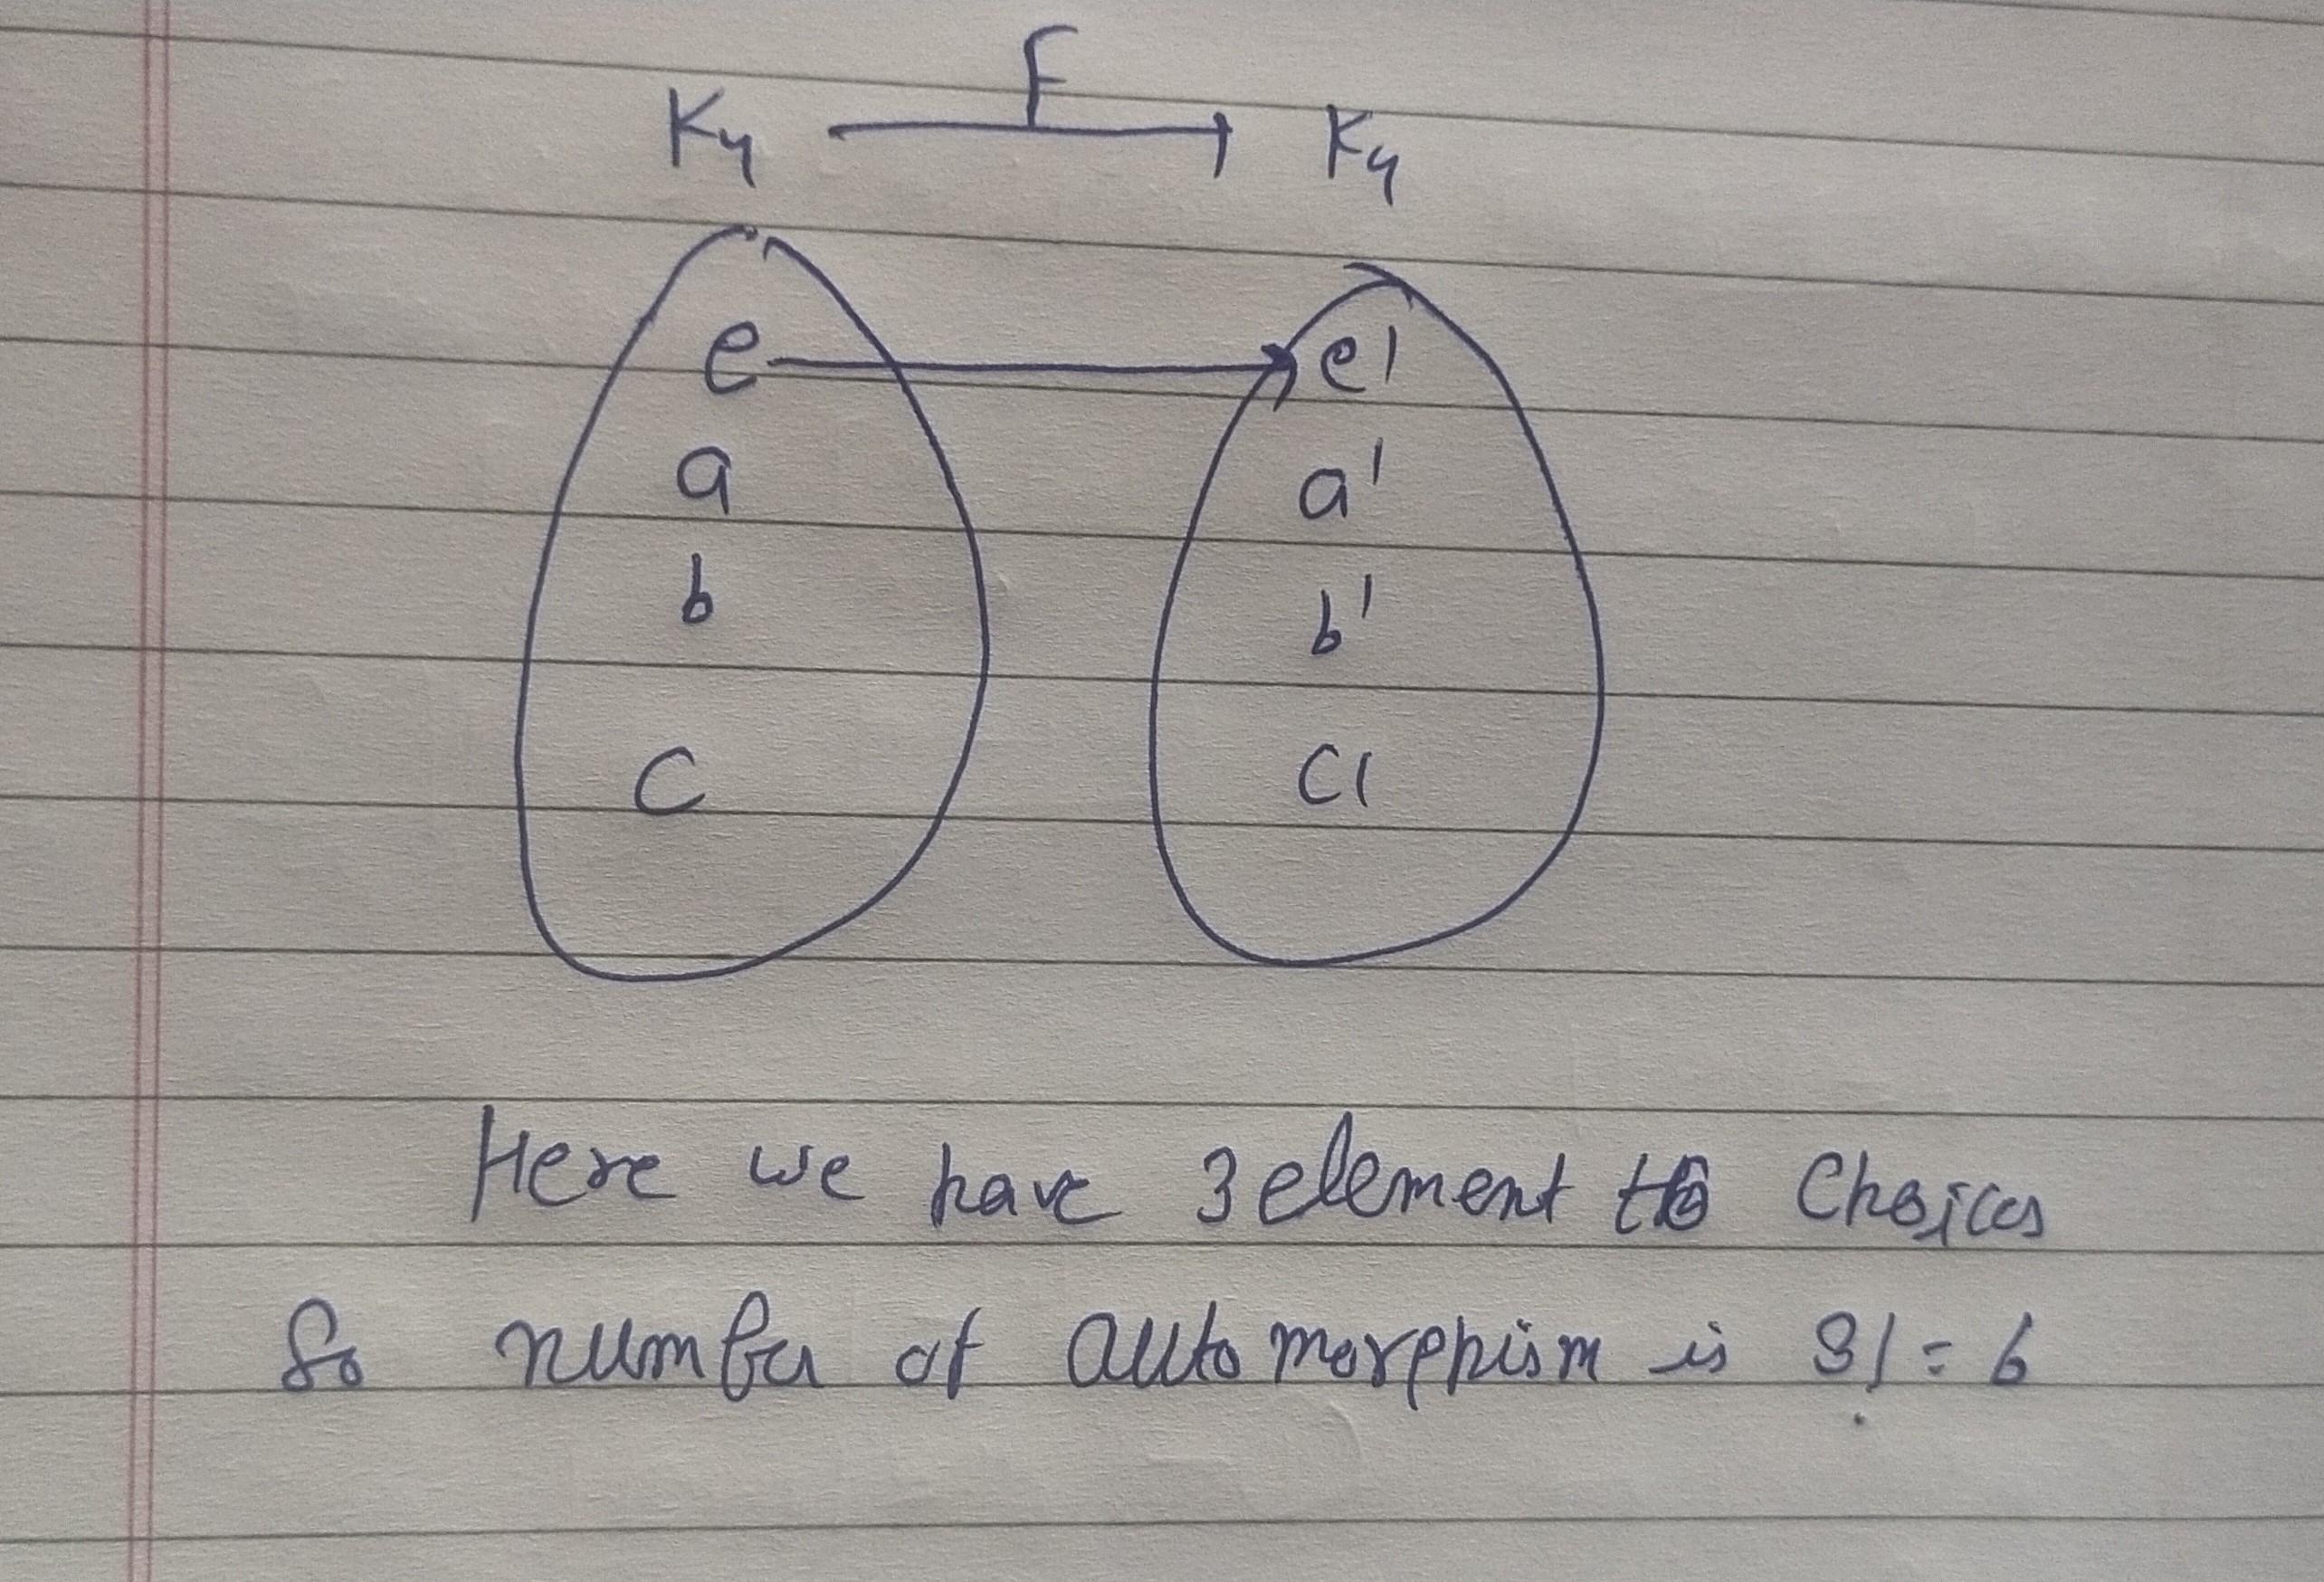 F
K4 → K4
e → e'
a a'
b b'
c c'
Here we have 3 element to Choices
So number of automorphism is 3! = 6